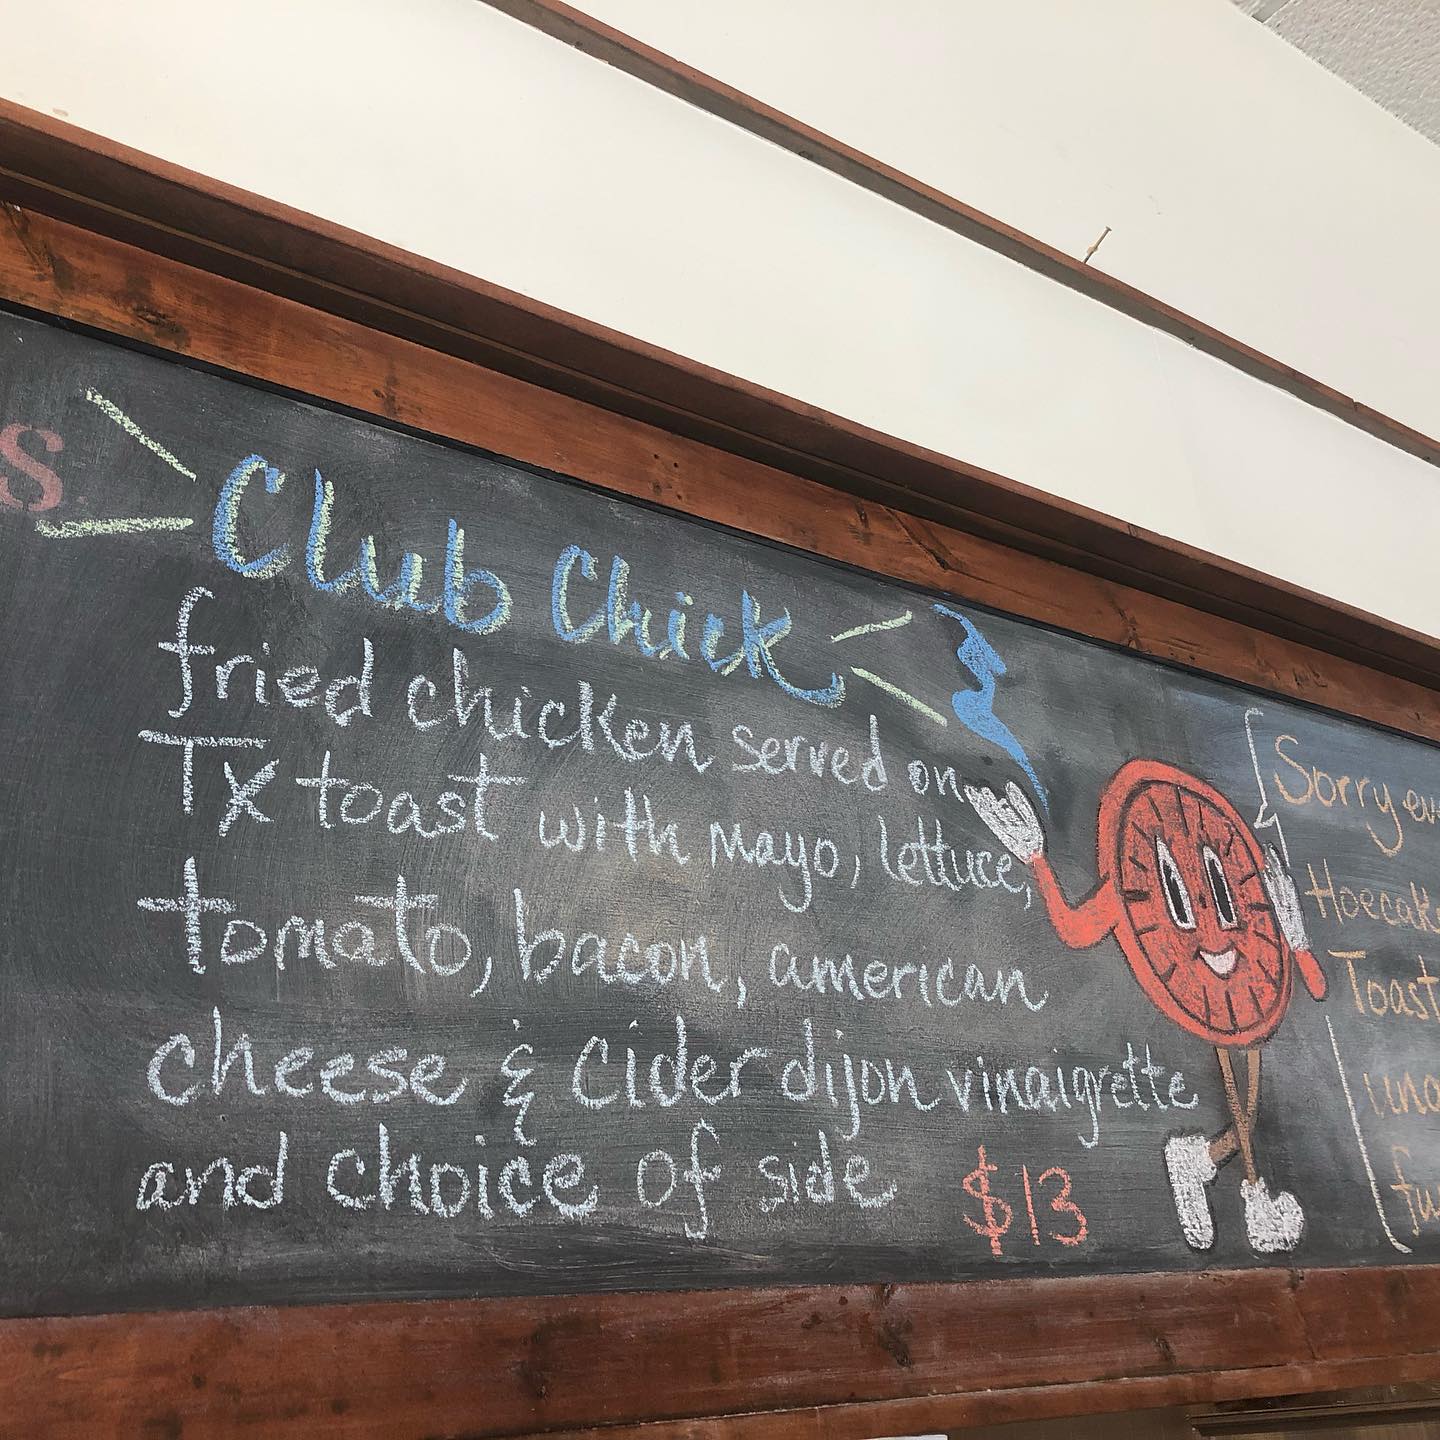 S.
Club Chick
fried chicken served on
TX toast with mayo, lettuce,
tomato, bacon, american
cheese & cider dijon vinaigrette
and choice of side $13
Sorry
Toast